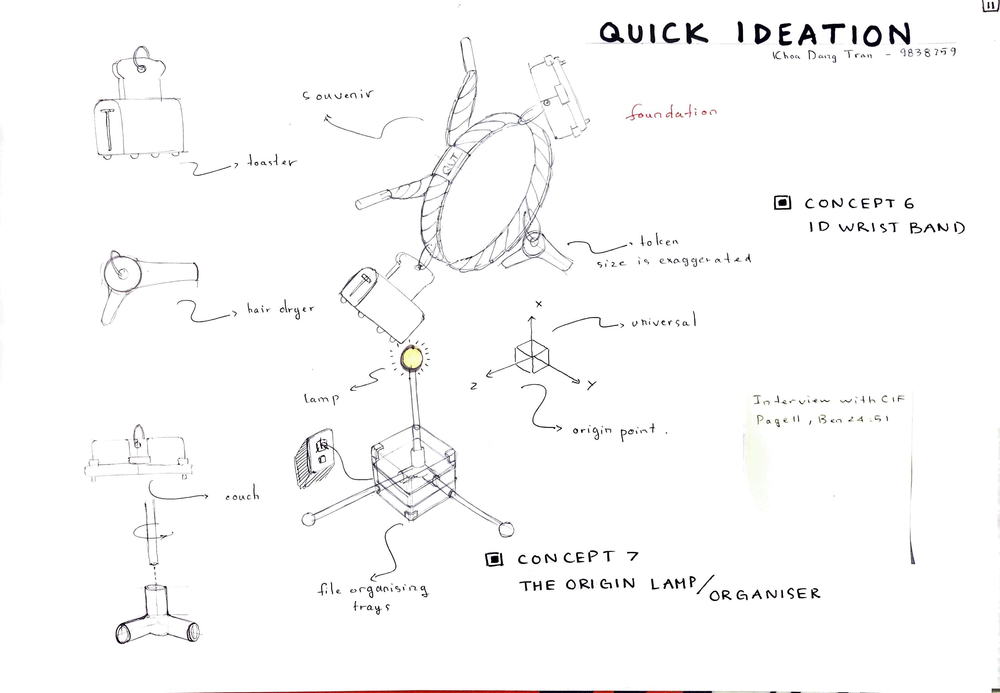 11
QUICK IDEATION
Khoa Dang Tran - 9838759
souvenir
foundation
toaster
CONCEPT 6
ID WRIST BAND
token
size is exaggerated
hair dryer
X
universal
Z
Y
lamp
origin point.
Interview with CIF
Page 11, Ben 24:51
couch
CONCEPT 7
THE ORIGIN LAMP/
ORGANISER
file organising
trays